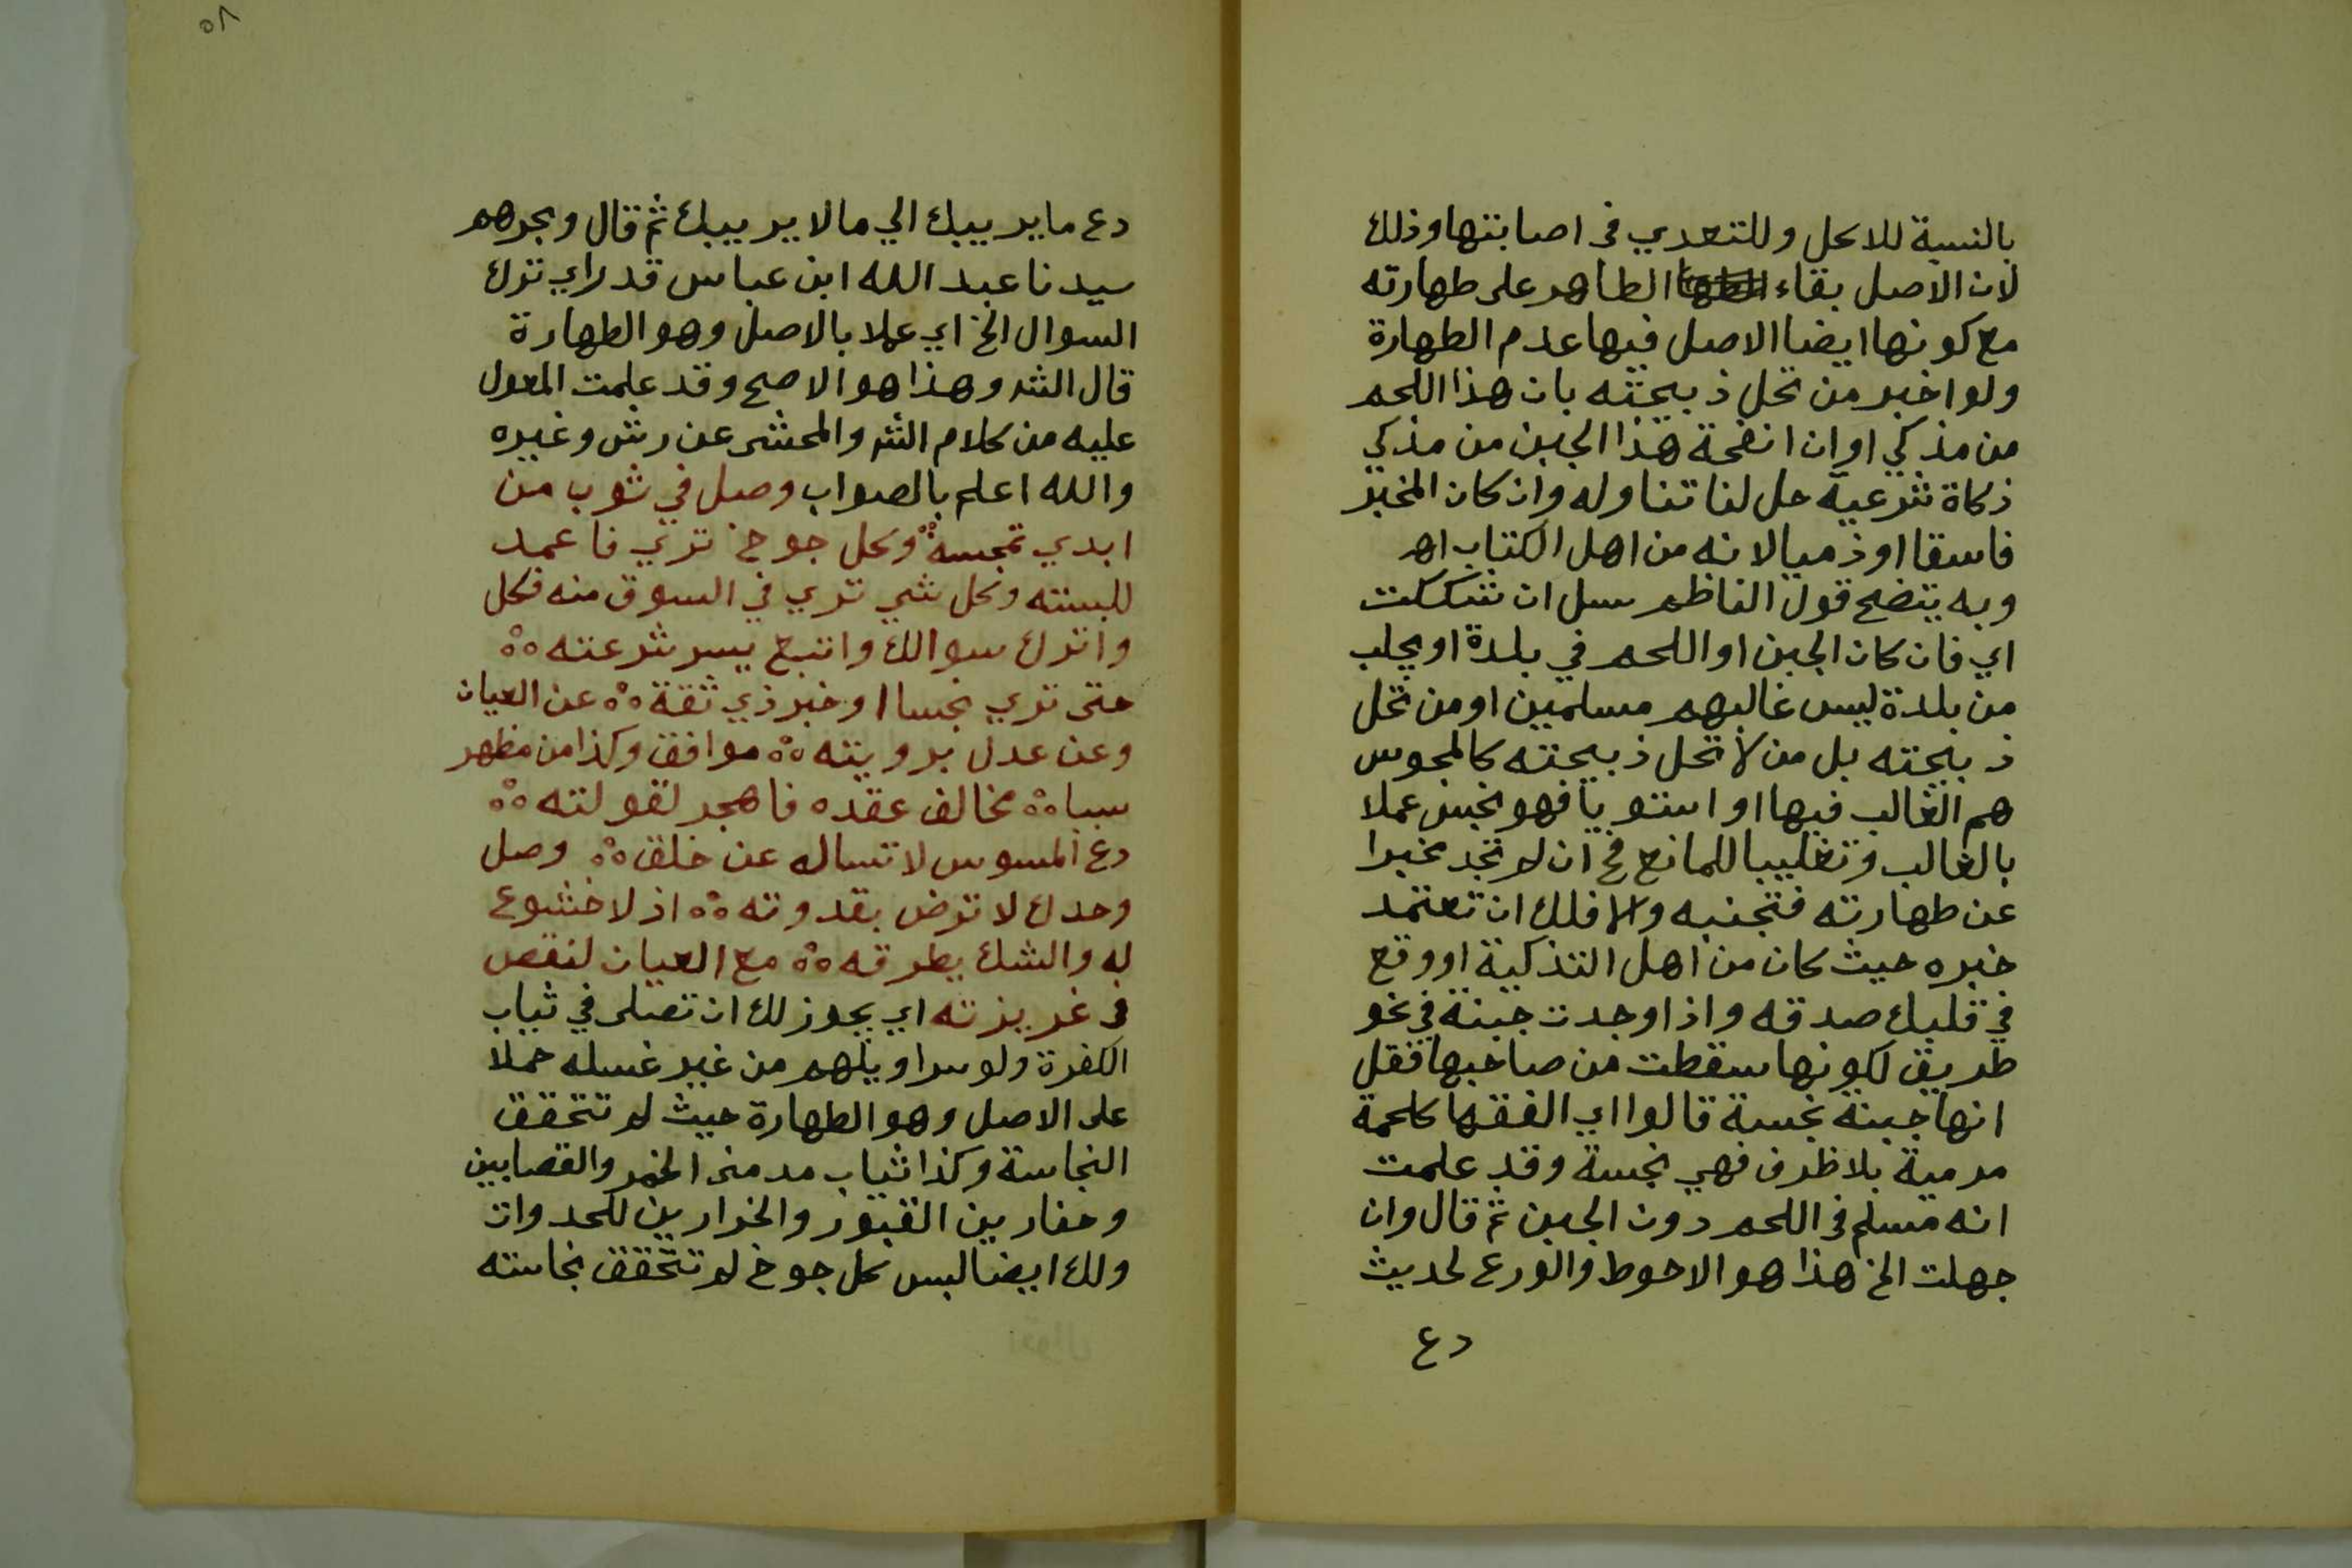 بالنسبة للاكل وللتعدي في اصابتها وذلك
لان الاصل بقاء الطاهر على طهارته
مع كونها ايضا الاصل فيها عدم الطهارة
ولو اخبر من تحل ذبيحته بان هذا اللحم
من مذكي او ان انفحة هذا الجبن من مذكي
ذكاة شرعية حل لنا تناوله وان كان المخبر
فاسقا او ذميا لانه من اهل الكتاب اهـ
وبه يتضح قول الناظم سل ان شككت
اي فان كان الجبن او اللحم في بلدة او يجلب
من بلدة ليس غالبهم مسلمين او من تحل
ذبيحته بل من لا تحل ذبيحته كالمجوس
هم الغالب فيها او استويا فهو نجس عملا
بالغالب وتغليبا للمانع فح ان لم تجد مخبرا
عن طهارته فتجنبه والا فلك ان تعتمد
خبره حيث كان من اهل التذكية او وقع
في قلبك صدقه واذا وجدت جبنة في نحو
طريق لكونها سقطت من صاحبها فقل
انها جبنة نجسة قالوا اي الفقها كلحمة
مرمية بلا ظرف فهي نجسة وقد علمت
انه مسلم في اللحم دون الجبن ثم قال وان
جهلت الخ هذا هو الاحوط والورع لحديث
دع
٥٨
دع ما يريبك الي ما لا يريبك ثم قال وبحرهم
سيدنا عبد الله ابن عباس قد راي ترك
السوال الخ اي عملا بالاصل وهو الطهارة
قال الش وهذا هو الاصح وقد علمت المعول
عليه من كلام الش والمحشى عن رش وغيره
والله اعلم بالصواب وصل في ثوب من
ابدي تمجسه وكل جوخ تري فاعمد
للبسته وكل شي تري في السوق منه فكل
واترك سوالك واتبع يسر شرعته
حتى تري نجسا او خبر ذي ثقة عن العيان
وعن عدل برويته موافق وكذا من مظهر
سببا مخالف عقده فاهجر لقولته
دع الموسوس لا تساله عن خلق وصل
وحدك لا ترض بقدوته اذ لا خشوع
له والشك يطرقه مع العيان لنقص
في غريزته اي يجوز لك ان تصلى في ثياب
الكفرة ولو سراويلهم من غير غسله حملا
على الاصل وهو الطهارة حيث لم تتحقق
النجاسة وكذا ثياب مدمنى الخمر والقصابين
وحفارين القبور والخرارين للحدوات
ولك ايضا لبس كل جوخ لم تتحقق نجاسته